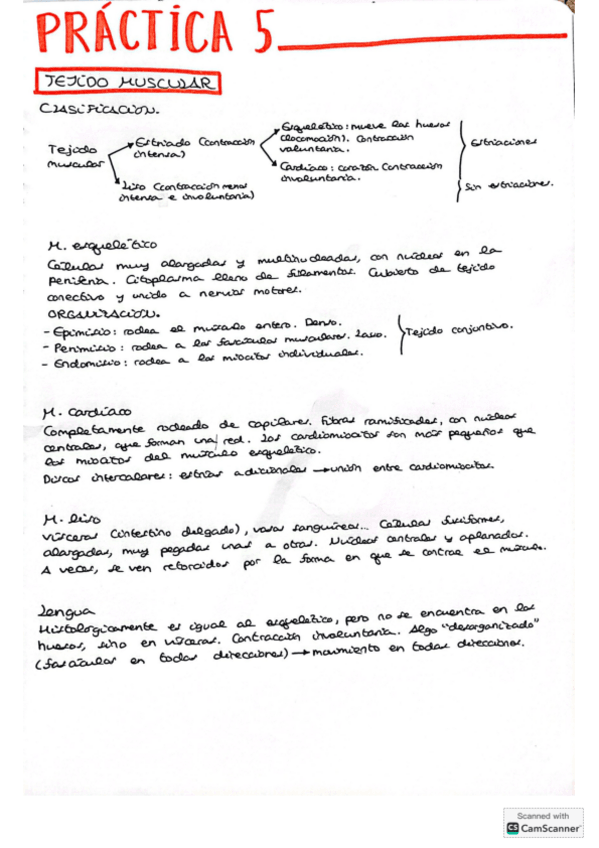 PRÁCTICA 5
TEJIDO MUSCULAR
CLASIFICACIÓN.
Tejido muscular
Estriado (contracción intensa)
Liso (contracción menos intensa e involuntaria)
Esquelético: mueve los huesos (locomoción). Contracción voluntaria.
Cardíaco: corazón. Contracción involuntaria.
Estriaciones
Sin estriaciones.
M. esquelético
Células muy alargadas y multinucleadas, con núcleos en la
periferia. Citoplasma lleno de filamentos. Cubierto de tejido
conectivo y unido a nervios motores.
ORGANIZACIÓN.
- Epimisio: rodea el músculo entero. Denso.
- Perimisio: rodea a los fascículos musculares. Laxo.
- Endomisio: rodea a los miocitos individuales.
Tejido conjuntivo.
M. Cardíaco
Completamente rodeado de capilares. Fibras ramificadas, con núcleos
centrales, que forman una red. Los cardiomiocitos son más pequeños que
los miocitos del músculo esquelético.
Discos intercalares: estrías adicionales → unión entre cardiomiocitos.
M. liso
Vísceras (intestino delgado), vasos sanguíneos... Células fusiformes,
alargadas, muy pegadas unas a otras. Núcleos centrales y aplanados.
A veces, se ven retorcidos por la forma en que se contrae el músculo.
Lengua
Histológicamente es igual al esquelético, pero no se encuentra en los
huesos, sino en vísceras. Contracción involuntaria. Algo "desorganizado"
(fascículos en todas direcciones) → movimiento en todas direcciones.
Scanned with
CS CamScanner